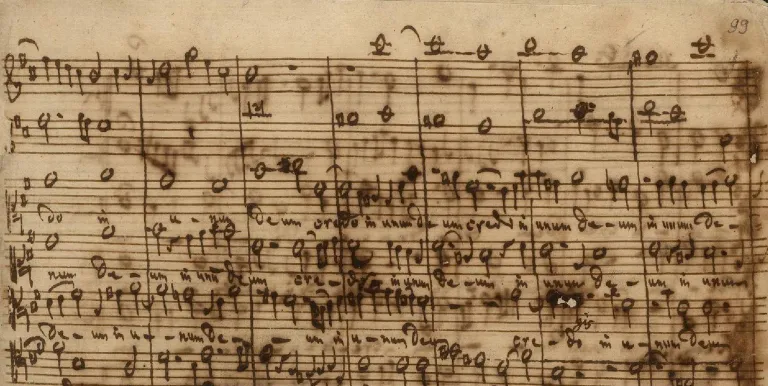 99
do in u - num de um credo in unum de um credo in unum de - um in unum de -
num de - um in unū de um cre - do in unum de - um in unum de - um in unum
de - um in u - num de - um in u - num deum cre - do in u - num deum